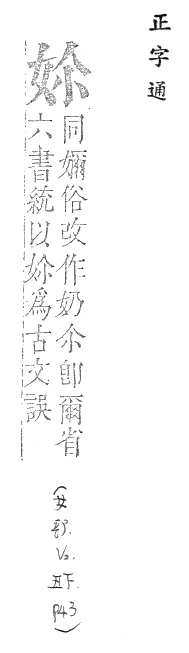 正字通
妳
同嬭俗改作奶尒卽爾省
六書統以妳爲古文誤
(女部.
V2.
丑下.
P43)